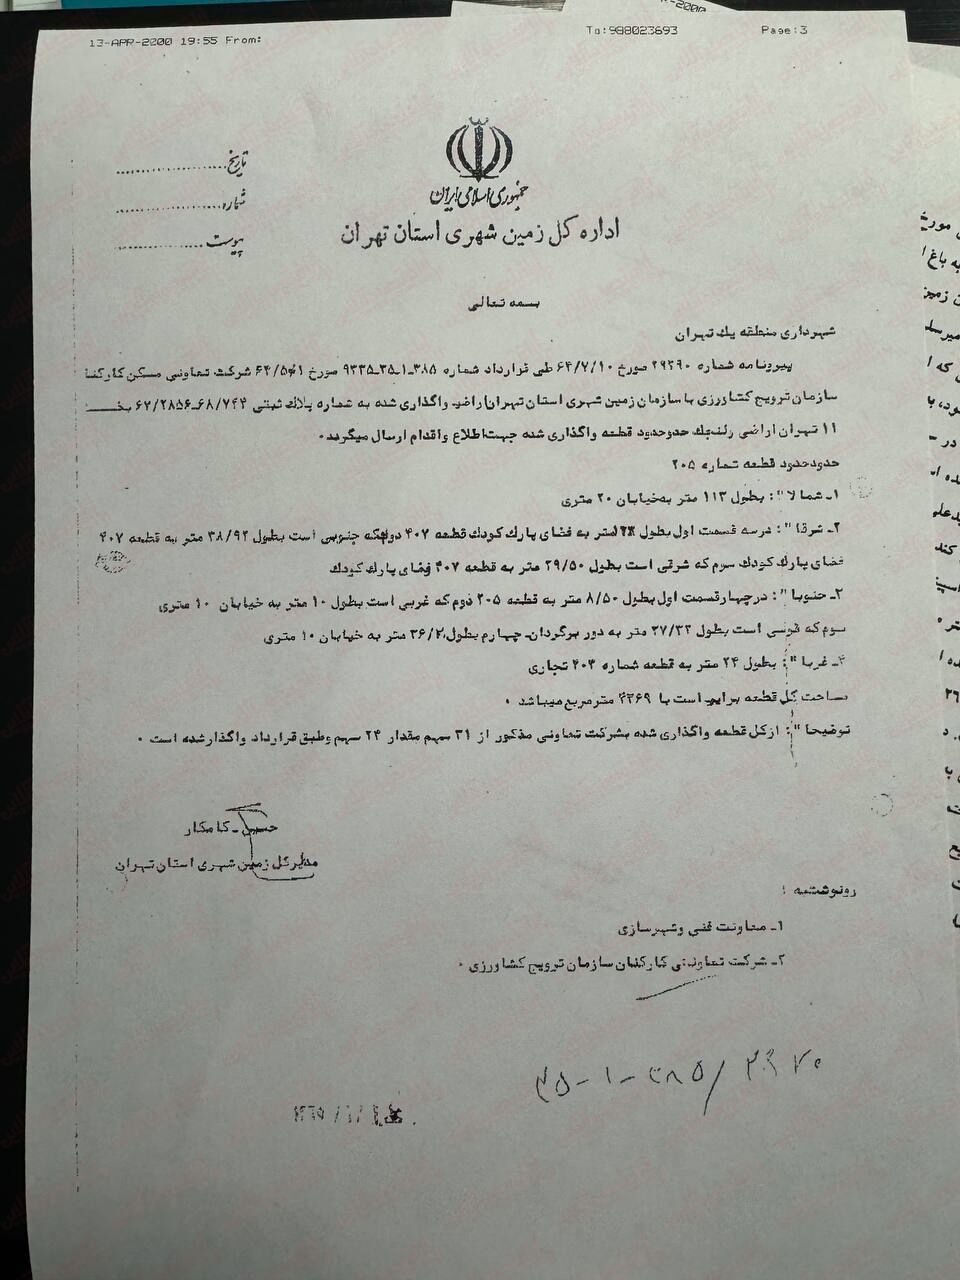 13-APR-2000 19:55 From: To:988023693 Page:3
جمهوری اسلامی ایران
اداره کل زمین شهری استان تهران
تاریخ
شماره
پیوست
بسمه تعالی
شهرداری منطقه یک تهران
پیرونامه شماره ۲۹۲۹۰ مورخ ۶۴/۷/۱۰ طی قرارداد شماره ۳۸۵-۱-۳۵-۹۳۳۵ مورخ شرکت تعاونی مسکن کارکنا
سازمان ترویج کشاورزی با سازمان زمین شهری استان تهران اراضی واگذاری شده به شماره پلاک ثبتی ۶۸/۷۴۴-۶۷/۲۸۵۶ بخش
۱۱ تهران اراضی حدوحدود قطعه واگذاری شده جهت اطلاع و اقدام ارسال میگردد.
حدودحدود قطعه شماره ۲۰۵
۱- شمالا": بطول ۱۱۳ متر به خیابان ۲۰ متری
۲- شرقا": درسه قسمت اول بطول متر به فضای پارک کودک قطعه ۴۰۷ دوم که جنوبی است بطول ۳۸/۹۲ متر به قطعه ۴۰۷
فضای پارک کودک سوم که شرقی است بطول ۲۹/۵۰ متر به قطعه ۴۰۷ فضای پارک کودک
۳- جنوبا": درچهارقسمت اول بطول ۸/۵۰ متر به قطعه ۲۰۵ دوم که غربی است بطول ۱۰ متر به خیابان ۱۰ متری
سوم که قوسی است بطول ۲۷/۳۳ متر به دور برگردان- چهارم بطول ۳۶/۲ متر به خیابان ۱۰ متری
۴- غربا": بطول ۲۴ متر به قطعه شماره ۴۰۳ تجاری
مساحت کل قطعه برابر است با ۴۳۶۹ مترمربع میباشد.
توضیحا": ازکل قطعه واگذاری شده بشرکت تعاونی مذکور از ۳۱ سهم مقدار ۲۴ سهم وطبق قرارداد واگذارشده است.
حسین-کامکار
مدیرکل زمین شهری استان تهران
رونوشت به:
۱- معاونت فنی وشهرسازی
۲- شرکت تعاونی کارکنان سازمان ترویج کشاورزی.
۳۵-۱-۳۸۵/